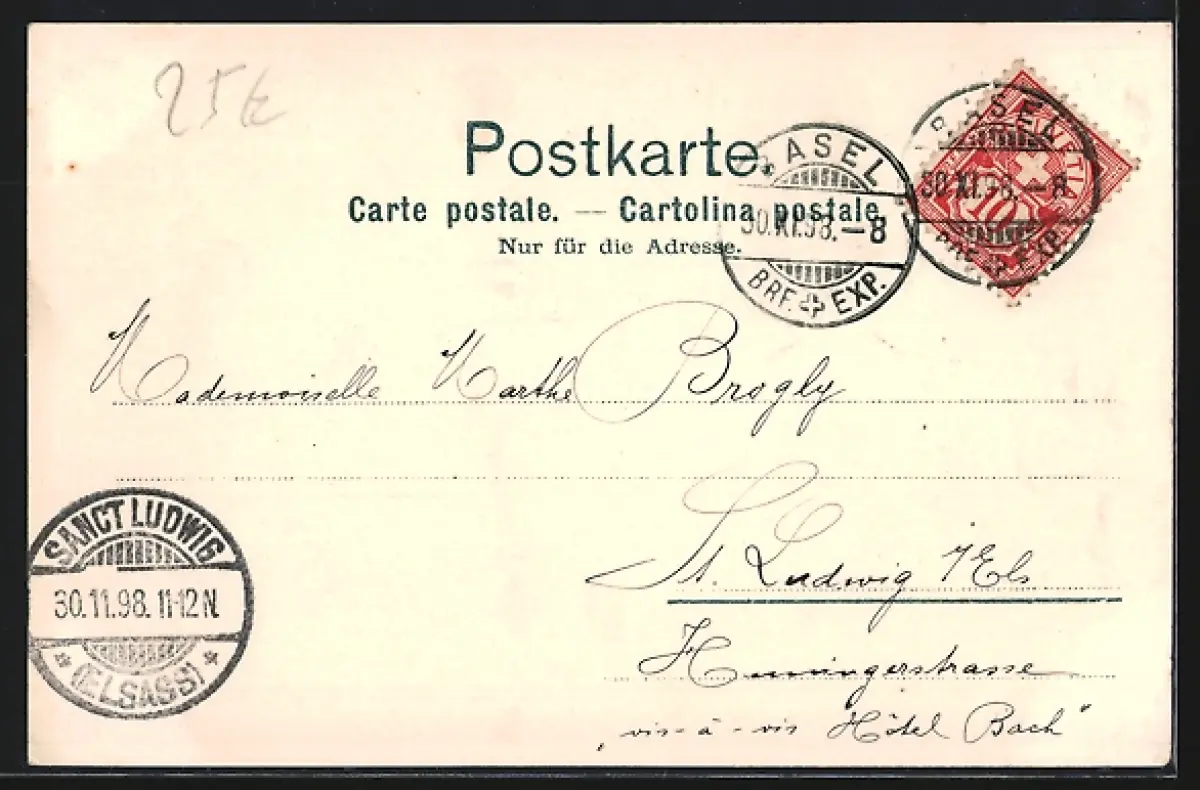 25€
Postkarte.
Carte postale. — Cartolina postale.
Nur für die Adresse.
BASEL
30.XI.98.-8
BRF. EXP.
BASEL
30.XI.98.-8
BRF. EXP.
HELVETIA
10
Mademoiselle Marthe Brogly
SANCT LUDWIG
30.11.98. 11-12 N.
* (ELSASS) *
St. Ludwig i/Els
Hüningerstrasse
„vis-à-vis Hôtel Bach"